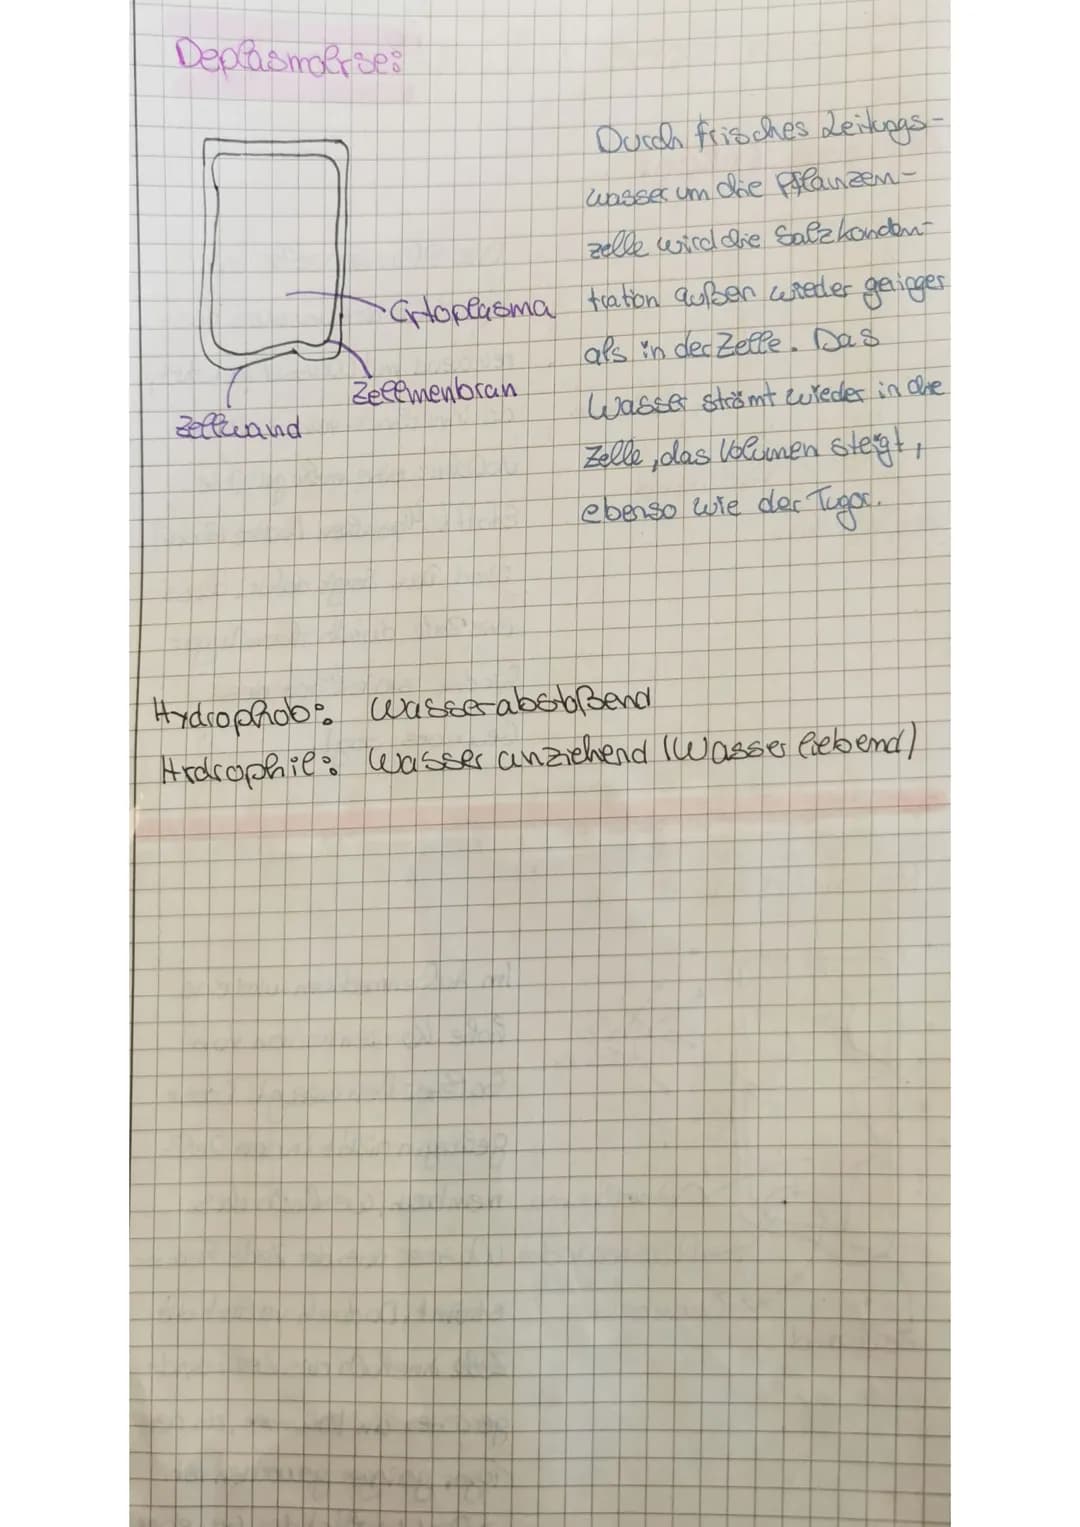 Deplasmolyse:
Durch frisches Leitungs-
wasser um die Pflanzen-
zelle wird die Salzkonzen-
tration außen wieder geringer
als in der Zelle. Das
Wasser strömt wieder in die
Zelle, das Volumen steigt,
ebenso wie der Tugor.
Cytoplasma
Zellmenbran
Zellwand
Hydrophob: Wasserabstoßend
Hydrophil: Wasser anziehend (Wasser liebend)